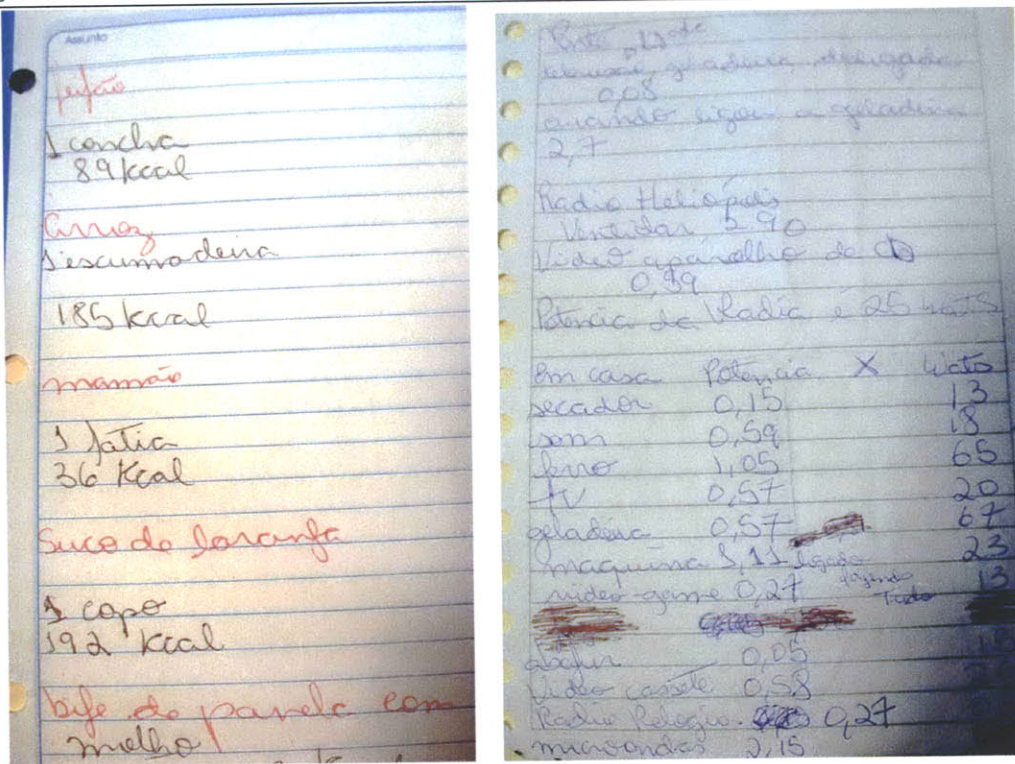 Assunto
feijão
1 concha
89 kcal
Arroz
1 escumadeira
185 kcal
mamão
1 fatia
36 Kcal
Suco de laranja
1 copo
192 kcal
bife de panela com
molho
0,08
quando ligou a geladeira
2,7
Radio Heliópolis
2.90
Video aparelho de CD
0,39
Potencia da Radio é 25 wats
em casa Potencia X Wats
secador 0,15 13
som 0,59 18
ferro 1,05 65
tv 0,57 20
geladeira 0,57 67
maquina 1,11 ligado 23
video-game 0,27 fazendo tudo 13
abajur 0,05
Video cassete 0,58
Radio Relogio 0,27
microondas 2,15